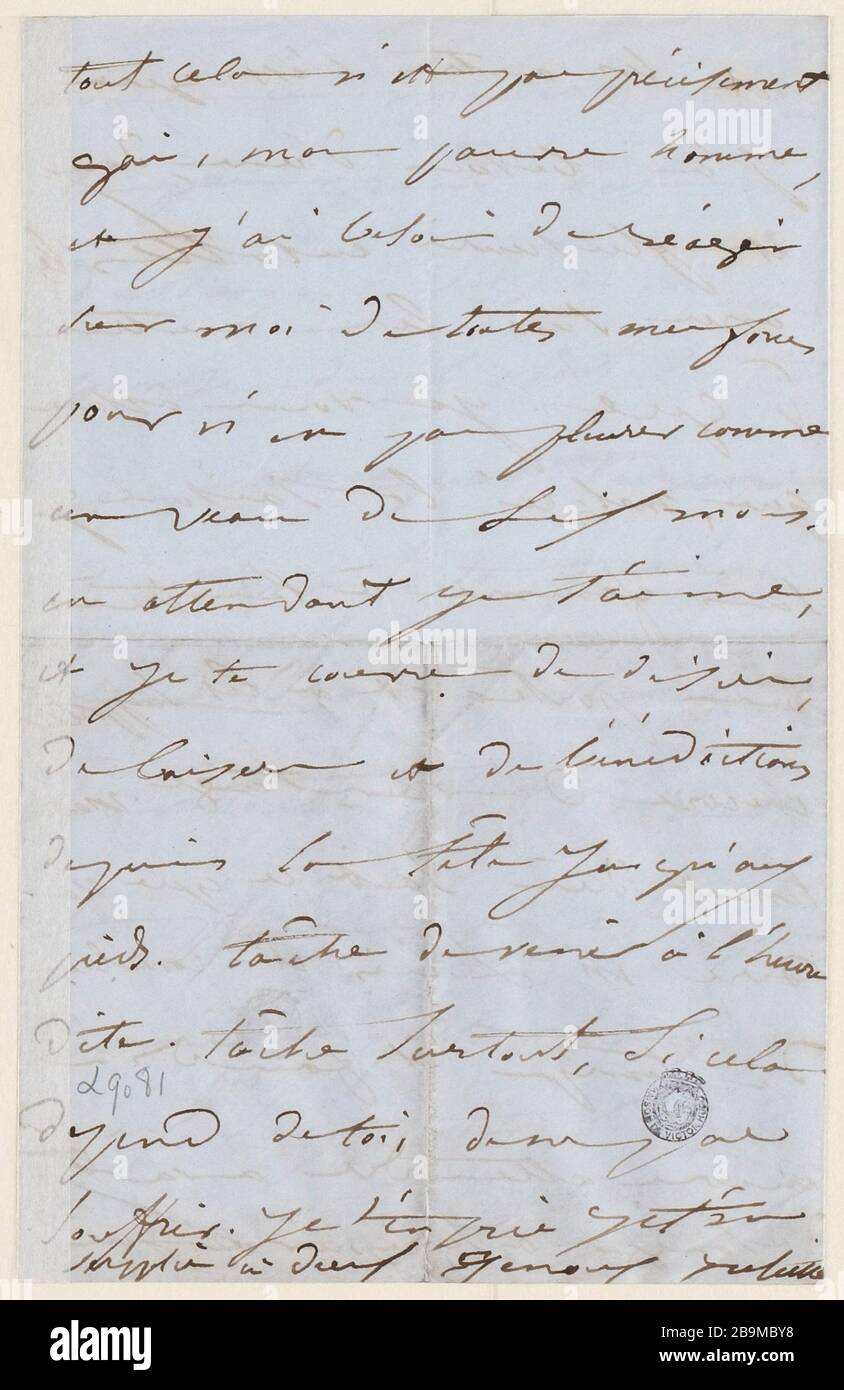 tout cela n'est pas précisément
gai, mon pauvre homme,
et j'ai besoin de réagir
sur moi de toutes mes forces
pour n'en pas pleurer comme
un veau de six mois.
en attendant je t'aime,
et je te couvre de
de baisers et de bénédictions
depuis la tête jusqu'aux
pieds. tâche de venir à l'heure
dite. tâche surtout, si cela
29081
dépend de toi, de ne pas
souffrir. je t'en prie je t'en
supplie à deux genoux Juliette
alamy
Image ID: 2B9MBY8
www.alamy.com